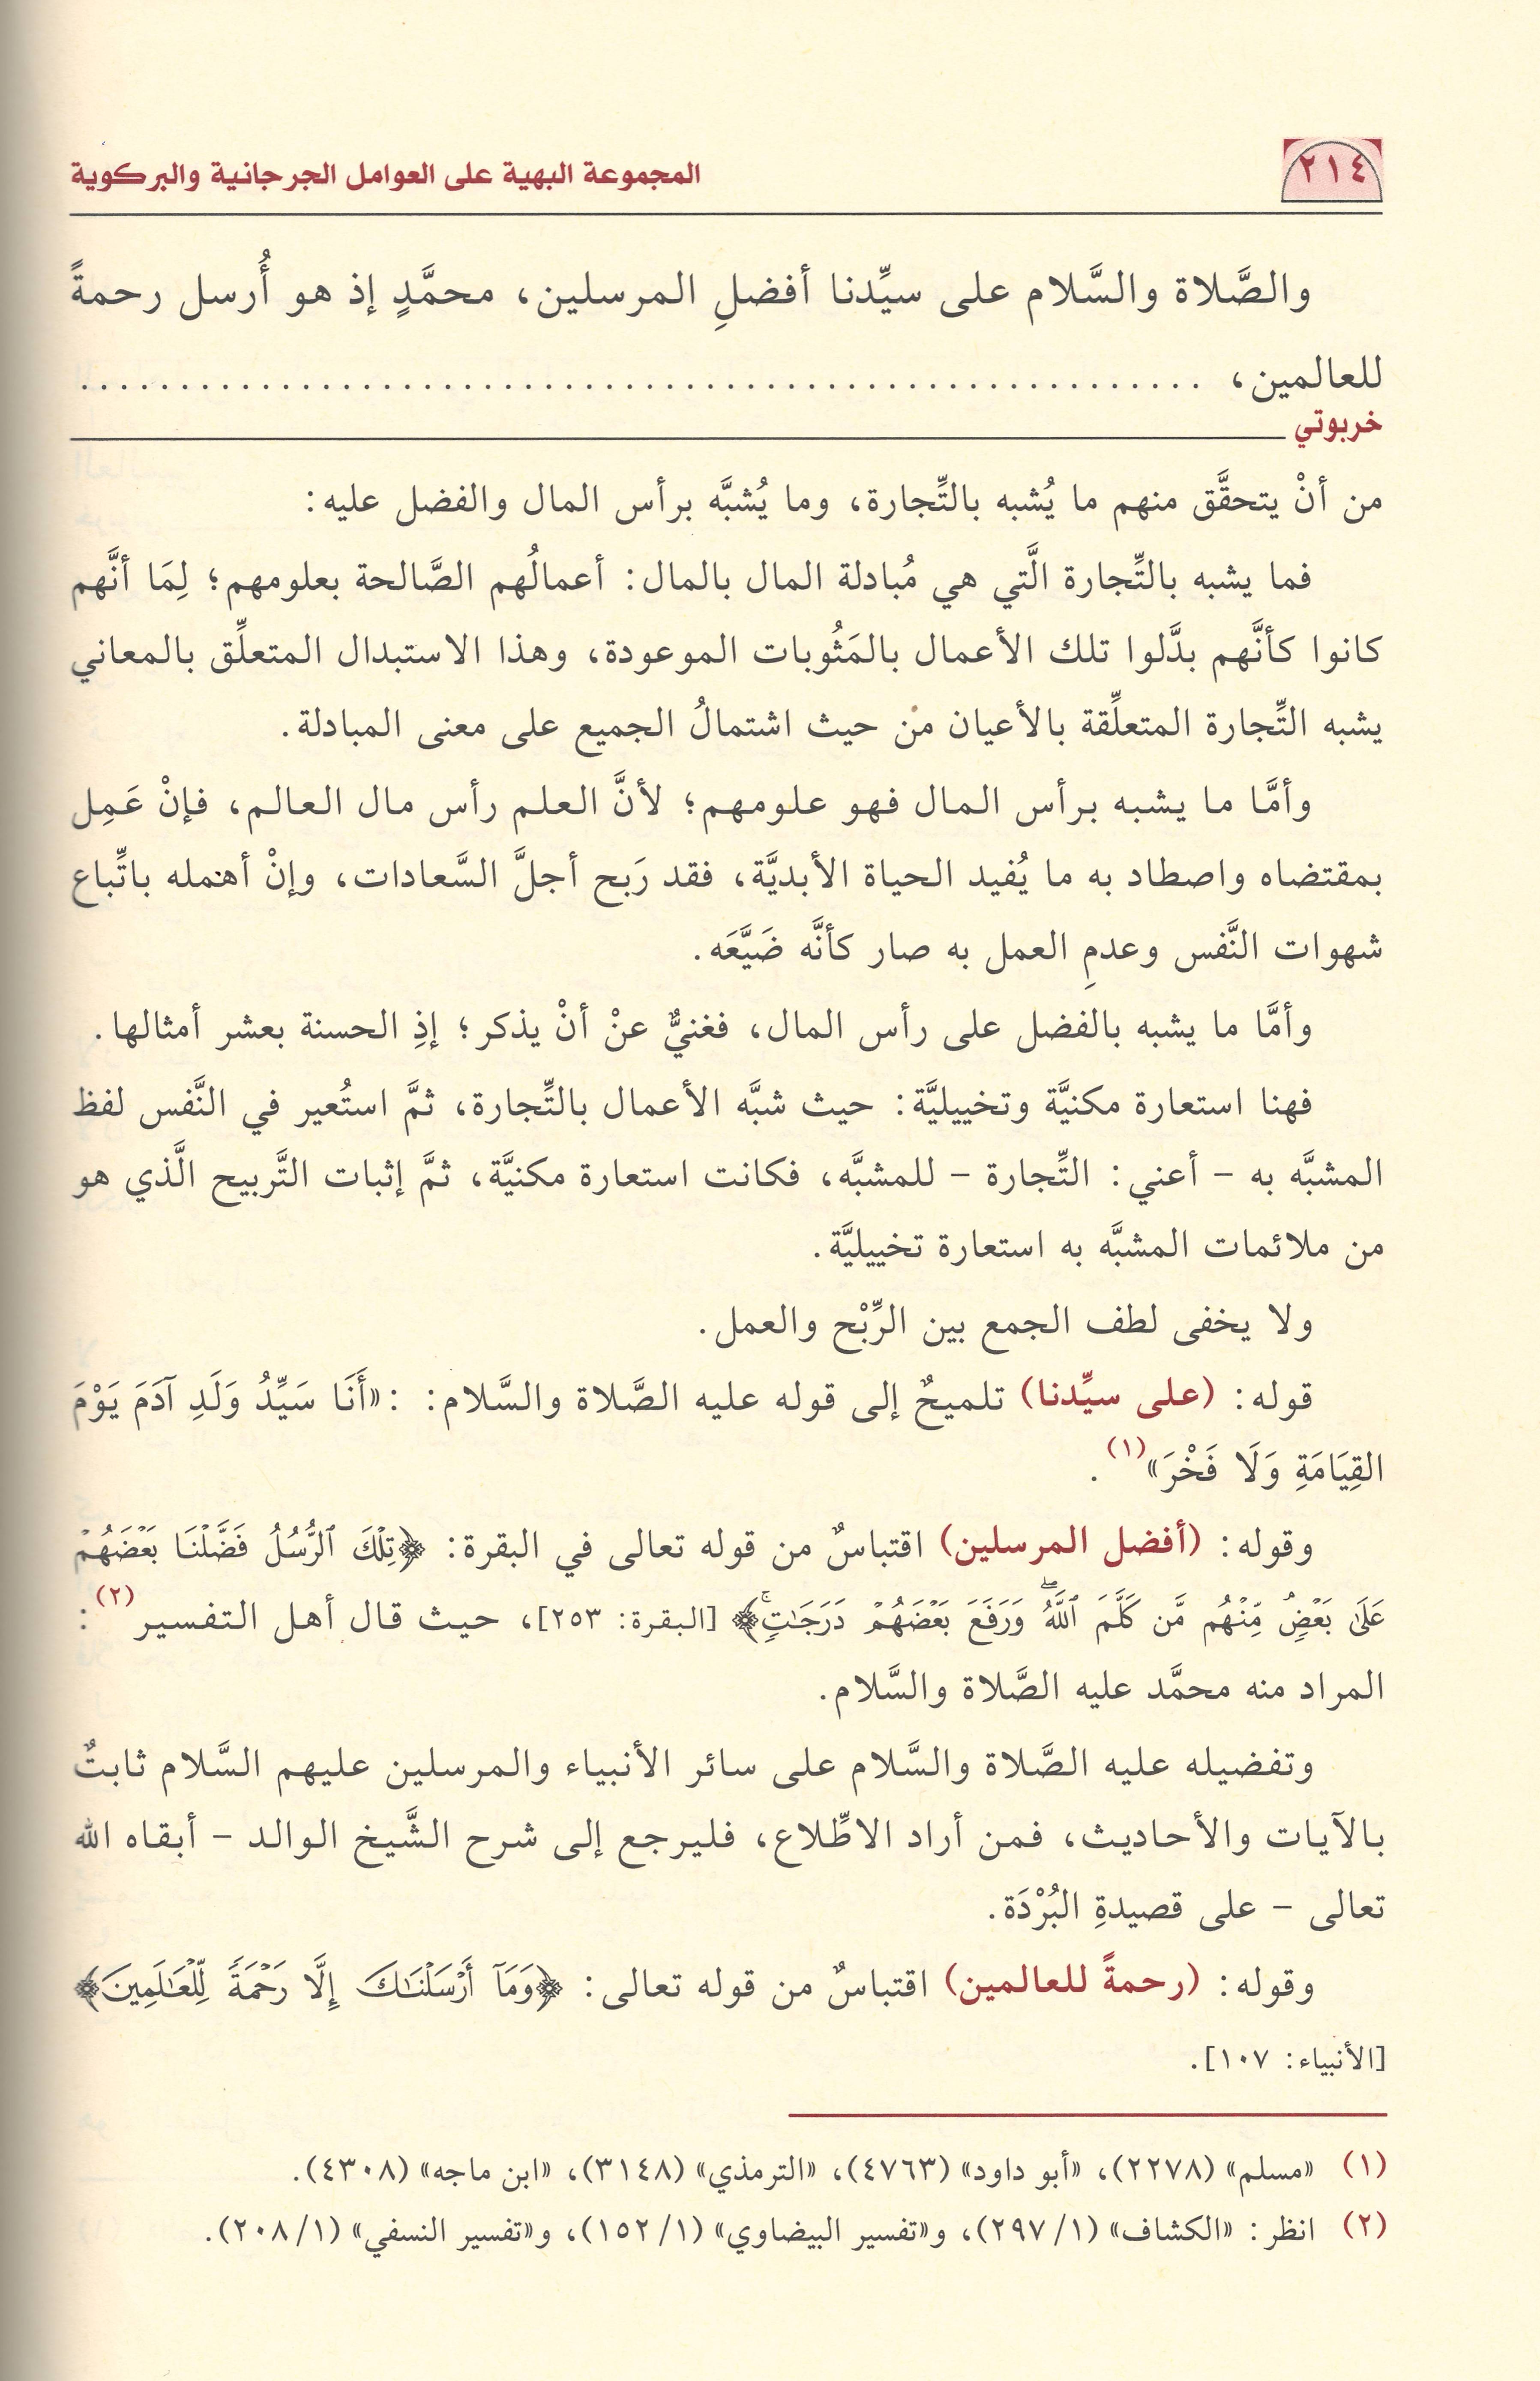 ٢١٤
المجموعة البهية على العوامل الجرجانية والبركوية
والصَّلاة والسَّلام على سيِّدنا أفضلِ المرسلين، محمَّدٍ إذ هو أُرسل رحمةً
للعالمين، ........................................................
خربوتي
من أنْ يتحقَّق منهم ما يُشبه بالتِّجارة، وما يُشبَّه برأس المال والفضل عليه:
فما يشبه بالتِّجارة الَّتي هي مُبادلة المال بالمال: أعمالُهم الصَّالحة بعلومهم؛ لِمَا أنَّهم
كانوا كأنَّهم بدَّلوا تلك الأعمال بالمَثُوبات الموعودة، وهذا الاستبدال المتعلِّق بالمعاني
يشبه التِّجارة المتعلِّقة بالأعيان من حيث اشتمالُ الجميع على معنى المبادلة.
وأمَّا ما يشبه برأس المال فهو علومهم؛ لأنَّ العلم رأس مال العالم، فإنْ عَمِل
بمقتضاه واصطاد به ما يُفيد الحياة الأبديَّة، فقد رَبح أجلَّ السَّعادات، وإنْ أهمله باتِّباع
شهوات النَّفس وعدمِ العمل به صار كأنَّه ضَيَّعَه.
وأمَّا ما يشبه بالفضل على رأس المال، فغنيٌّ عنْ أنْ يذكر؛ إذِ الحسنة بعشر أمثالها.
فهنا استعارة مكنيَّة وتخييليَّة: حيث شبَّه الأعمال بالتِّجارة، ثمَّ استُعير في النَّفس لفظ
المشبَّه به - أعني: التِّجارة - للمشبَّه، فكانت استعارة مكنيَّة، ثمَّ إثبات التَّربيح الَّذي هو
من ملائمات المشبَّه به استعارة تخييليَّة.
ولا يخفى لطف الجمع بين الرِّبْح والعمل.
قوله: (على سيِّدنا) تلميحٌ إلى قوله عليه الصَّلاة والسَّلام: :«أَنَا سَيِّدُ وَلَدِ آدَمَ يَوْمَ
القِيَامَةِ وَلَا فَخْرَ»(١).
وقوله: (أفضل المرسلين) اقتباسٌ من قوله تعالى في البقرة: ﴿تِلْكَ ٱلرُّسُلُ فَضَّلْنَا بَعْضَهُمْ
عَلَىٰ بَعْضٍۘ مِّنْهُم مَّن كَلَّمَ ٱللَّهُۖ وَرَفَعَ بَعْضَهُمْ دَرَجَٰتٍۚ﴾ [البقرة: ٢٥٣]، حيث قال أهل التفسير(٢):
المراد منه محمَّد عليه الصَّلاة والسَّلام.
وتفضيله عليه الصَّلاة والسَّلام على سائر الأنبياء والمرسلين عليهم السَّلام ثابتٌ
بالآيات والأحاديث، فمن أراد الاطِّلاع، فليرجع إلى شرح الشَّيخ الوالد - أبقاه الله
تعالى - على قصيدةِ البُرْدَة.
وقوله: (رحمةً للعالمين) اقتباسٌ من قوله تعالى: ﴿وَمَآ أَرْسَلْنَٰكَ إِلَّا رَحْمَةً لِّلْعَٰلَمِينَ﴾
[الأنبياء: ١٠٧].
(١) «مسلم» (٢٢٧٨)، «أبو داود» (٤٧٦٣)، «الترمذي» (٣١٤٨)، «ابن ماجه» (٤٣٠٨).
(٢) انظر: «الكشاف» (١/ ٢٩٧)، و«تفسير البيضاوي» (١/ ١٥٢)، و«تفسير النسفي» (١/ ٢٠٨).